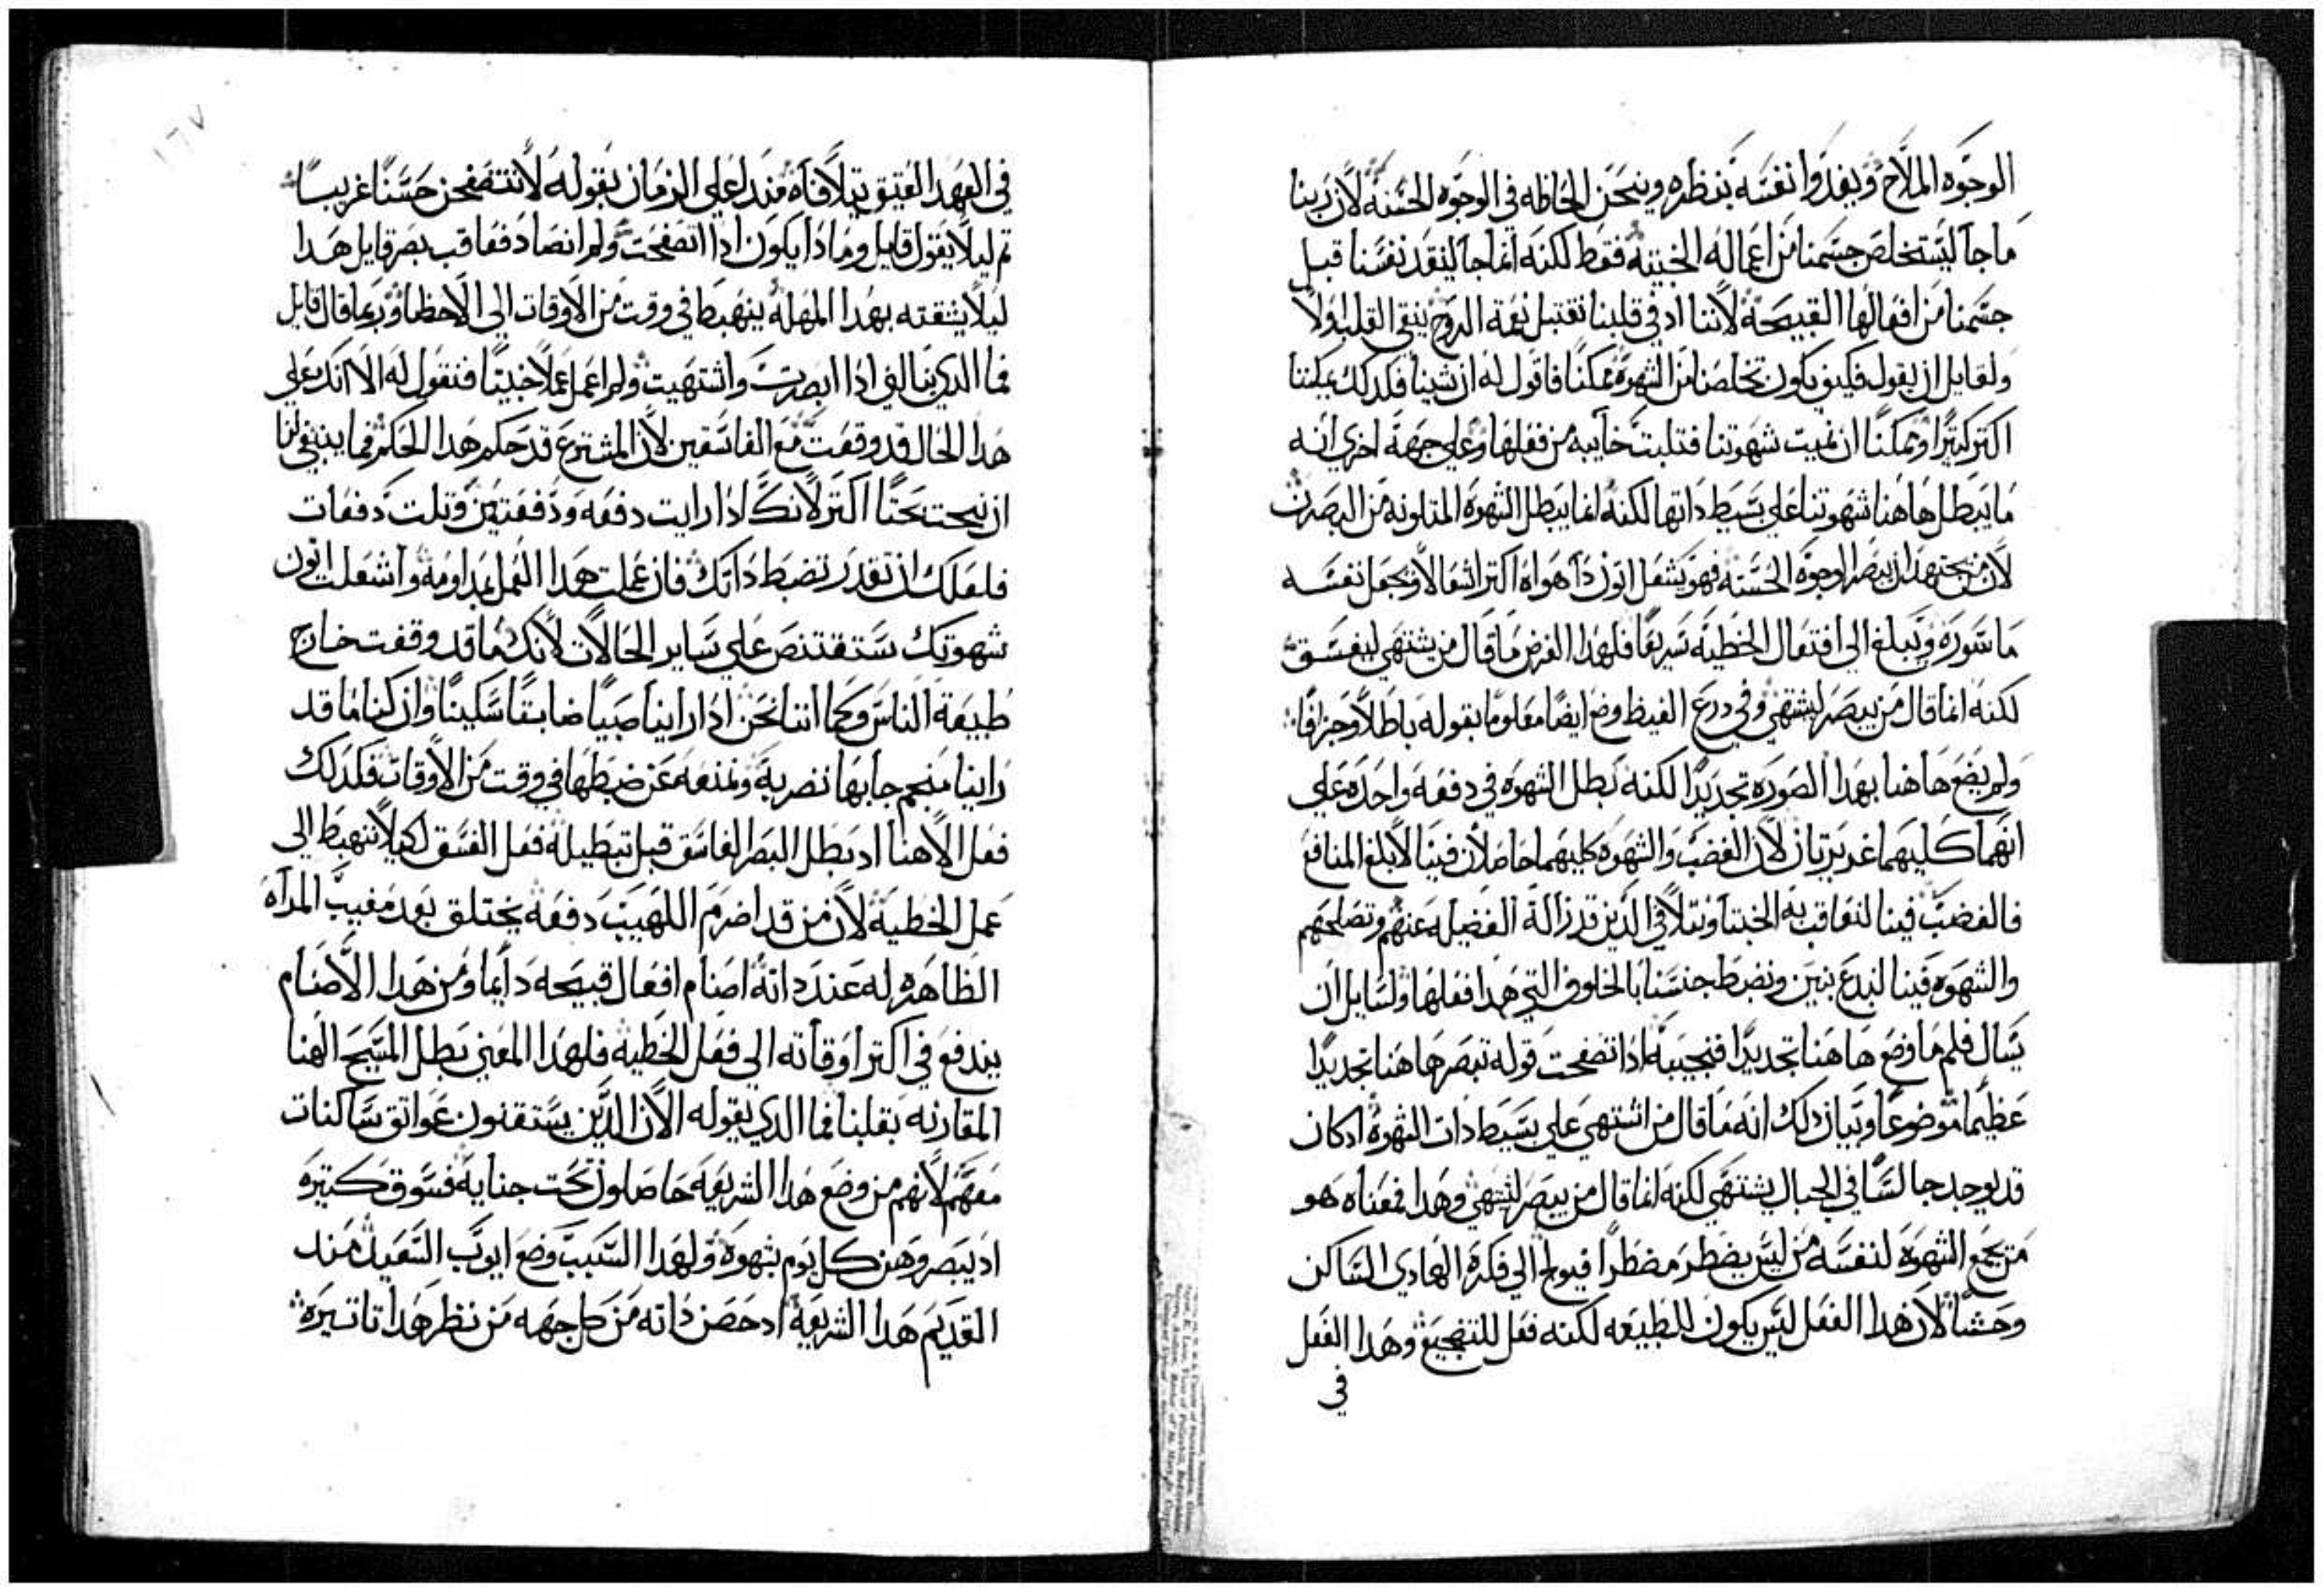 الوجوه الملاح ويغدوا نفسه بنظره وينحن الحاظه في الوجوه الحسنه لان ربنا
ما جا ليستخلص جسمنا من اعماله الخبيثه فقط لكنه انما جا لينقذ نفسنا قبل
جسمنا من افعالها القبيحة لاننا اد في قلبنا نقتبل نعمة الروح ينقي القلب اولاً
ولقايل ان يقول فكيف يكون تخلصنا من الشهوة ممكنا فاقول له ان شينا فكذلك يمكننا
اكتر كتيرا وممكنا ان نميت شهوتنا فتلبت خايبه من فعلها وعلي جهة اخري انه
ما يبطل هاهنا شهوتنا علي بسيط داتها لكنه انما يبطل الشهوة المتلونه من البصر
لان من يجتهد ان يبصر الوجوه الحسنه فهو يشعل اتون دا هواه اكتر اشعالا ويجعل نفسه
ماسورة ويبلغ الي افتعال الخطية سريعا فلهدا الغرض ما قال من يشتهي ليفسق
لكنه انما قال من يبصر ليشتهي وفي درع الغيظ وضع ايضا معلوما بقوله باطلا وجزافا
ولم يضع هاهنا بهدا الصوره تحديدا لكنه بطل الشهوه في دفعه واحده علي
انهما كليهما غريزيان لان الغضب والشهوه كليهما حاصلان فينا لابلغ المنافع
فالغضب فينا لنعاقب به الخبتا ونتلافي الدين قد زالة الفضيله عنهم ونصلحهم
والشهوه فينا لنبدع بنين ونضبط جنسنا بالخلوف التي هدا فعلها ولسايل ان
يسال فلم ما وضع هاهنا تحديدا فنجيبه ادا تصفحت قوله تبصر هاهنا تحديدا
عظيما موضوعا وبيان دلك انه ما قال من اشتهي علي بسيط دات الشهوة ادكان
قد يوجد جالسا في الجبال يشتهي لكنه انما قال من يبصر ليشتهي وهدا فمعناه هو
من يجمع الشهوة لنفسه من ليس يضطر مضطرا فيولج الي فكرة الهادي الساكن
وحشا لان هدا الفعل ليس يكون للطبيعه لكنه فعل للتضجيع وهدا الفعل
في
١٦٧
في العهد العتيق يتلافاه مند اعلي الزمان بقوله لا تتصفحن حسنا غريبا
تم ليلا يقول قايل وما دا يكون ادا اتصفحت ولم انصاد فعاقب بصر قايل هدا
ليلا بثقته بهدا المهله ينهبط في وقت من الاوقات الي الاخطا وربما قال قايل
فما الدي ينالني ادا ابصرت واشتهيت ولم اعمل عملا خبيتا فنقول له الا انك علي
هدا الحال قد وقفت مع الفاسقين لان المشترع قد حكم هدا الحكم فما ينبغي لنا
ان نبحت بحتا اكتر لانك ادا رايت دفعه ودفعتين وتلت دفعات
فلعلك ان تقدر تضبط داتك فان عملت هدا العمل بمداومة واشعلت اتون
شهوتك ستقتنص علي ساير الحالات لانك ما قد وقفت خارج
طبيعة الناس وكما اننا نحن ادا راينا صبيا ضابطا سكينا وان كنا ما قد
راينا منجرحا بها نضربه ونمنعه عن ضبطها في وقت من الاوقات فكدلك
فعل الاهنا اد بطل البصر الفاسق قبل تبطيله فعل الفسق لكيلا ننهبط الي
عمل الخطية لان من قد اضرم اللهيب دفعه يختلق بعد مغيب المراه
الظاهره له عند داته اصنام افعال قبيحه دايما ومن هدا الاصنام
يندفع في اكتر اوقاته الي فعل الخطية فلهدا المعني بطل المسيح الهنا
المقارنه بقلبنا فما الدي يقوله الان الدين يستقنون عواتق ساكنات
معهم لانهم من وضع هدا الشريعه حاصلون تحت جناية فسوق كتيره
اد يبصروهن كل يوم بشهوة ولهدا السبب وضع ايوب السعيد مند
القديم هدا الشريعة اد حصن داته من كل جهه من نظر هدا تاتيره